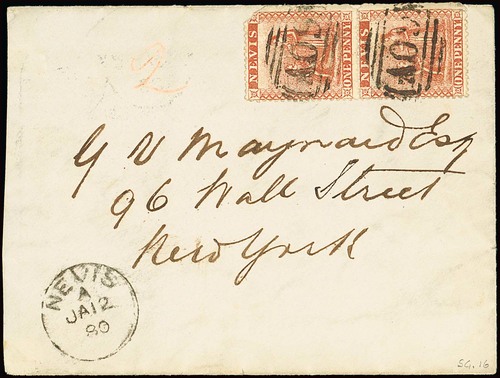 NEVIS ONE PENNY NEVIS ONE PENNY
A09 A09
2
G V Maynard Esq
96 Wall Street
New York
NEVIS
A
JA 12
80
SG.16